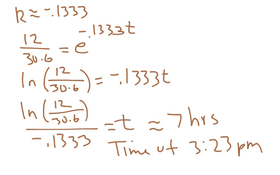 k ≈ -.1333
12/30.6 = e^-.1333t
ln(12/30.6) = -.1333t
ln(12/30.6)/-.1333 = t ≈ 7 hrs
Time of 3:23 pm